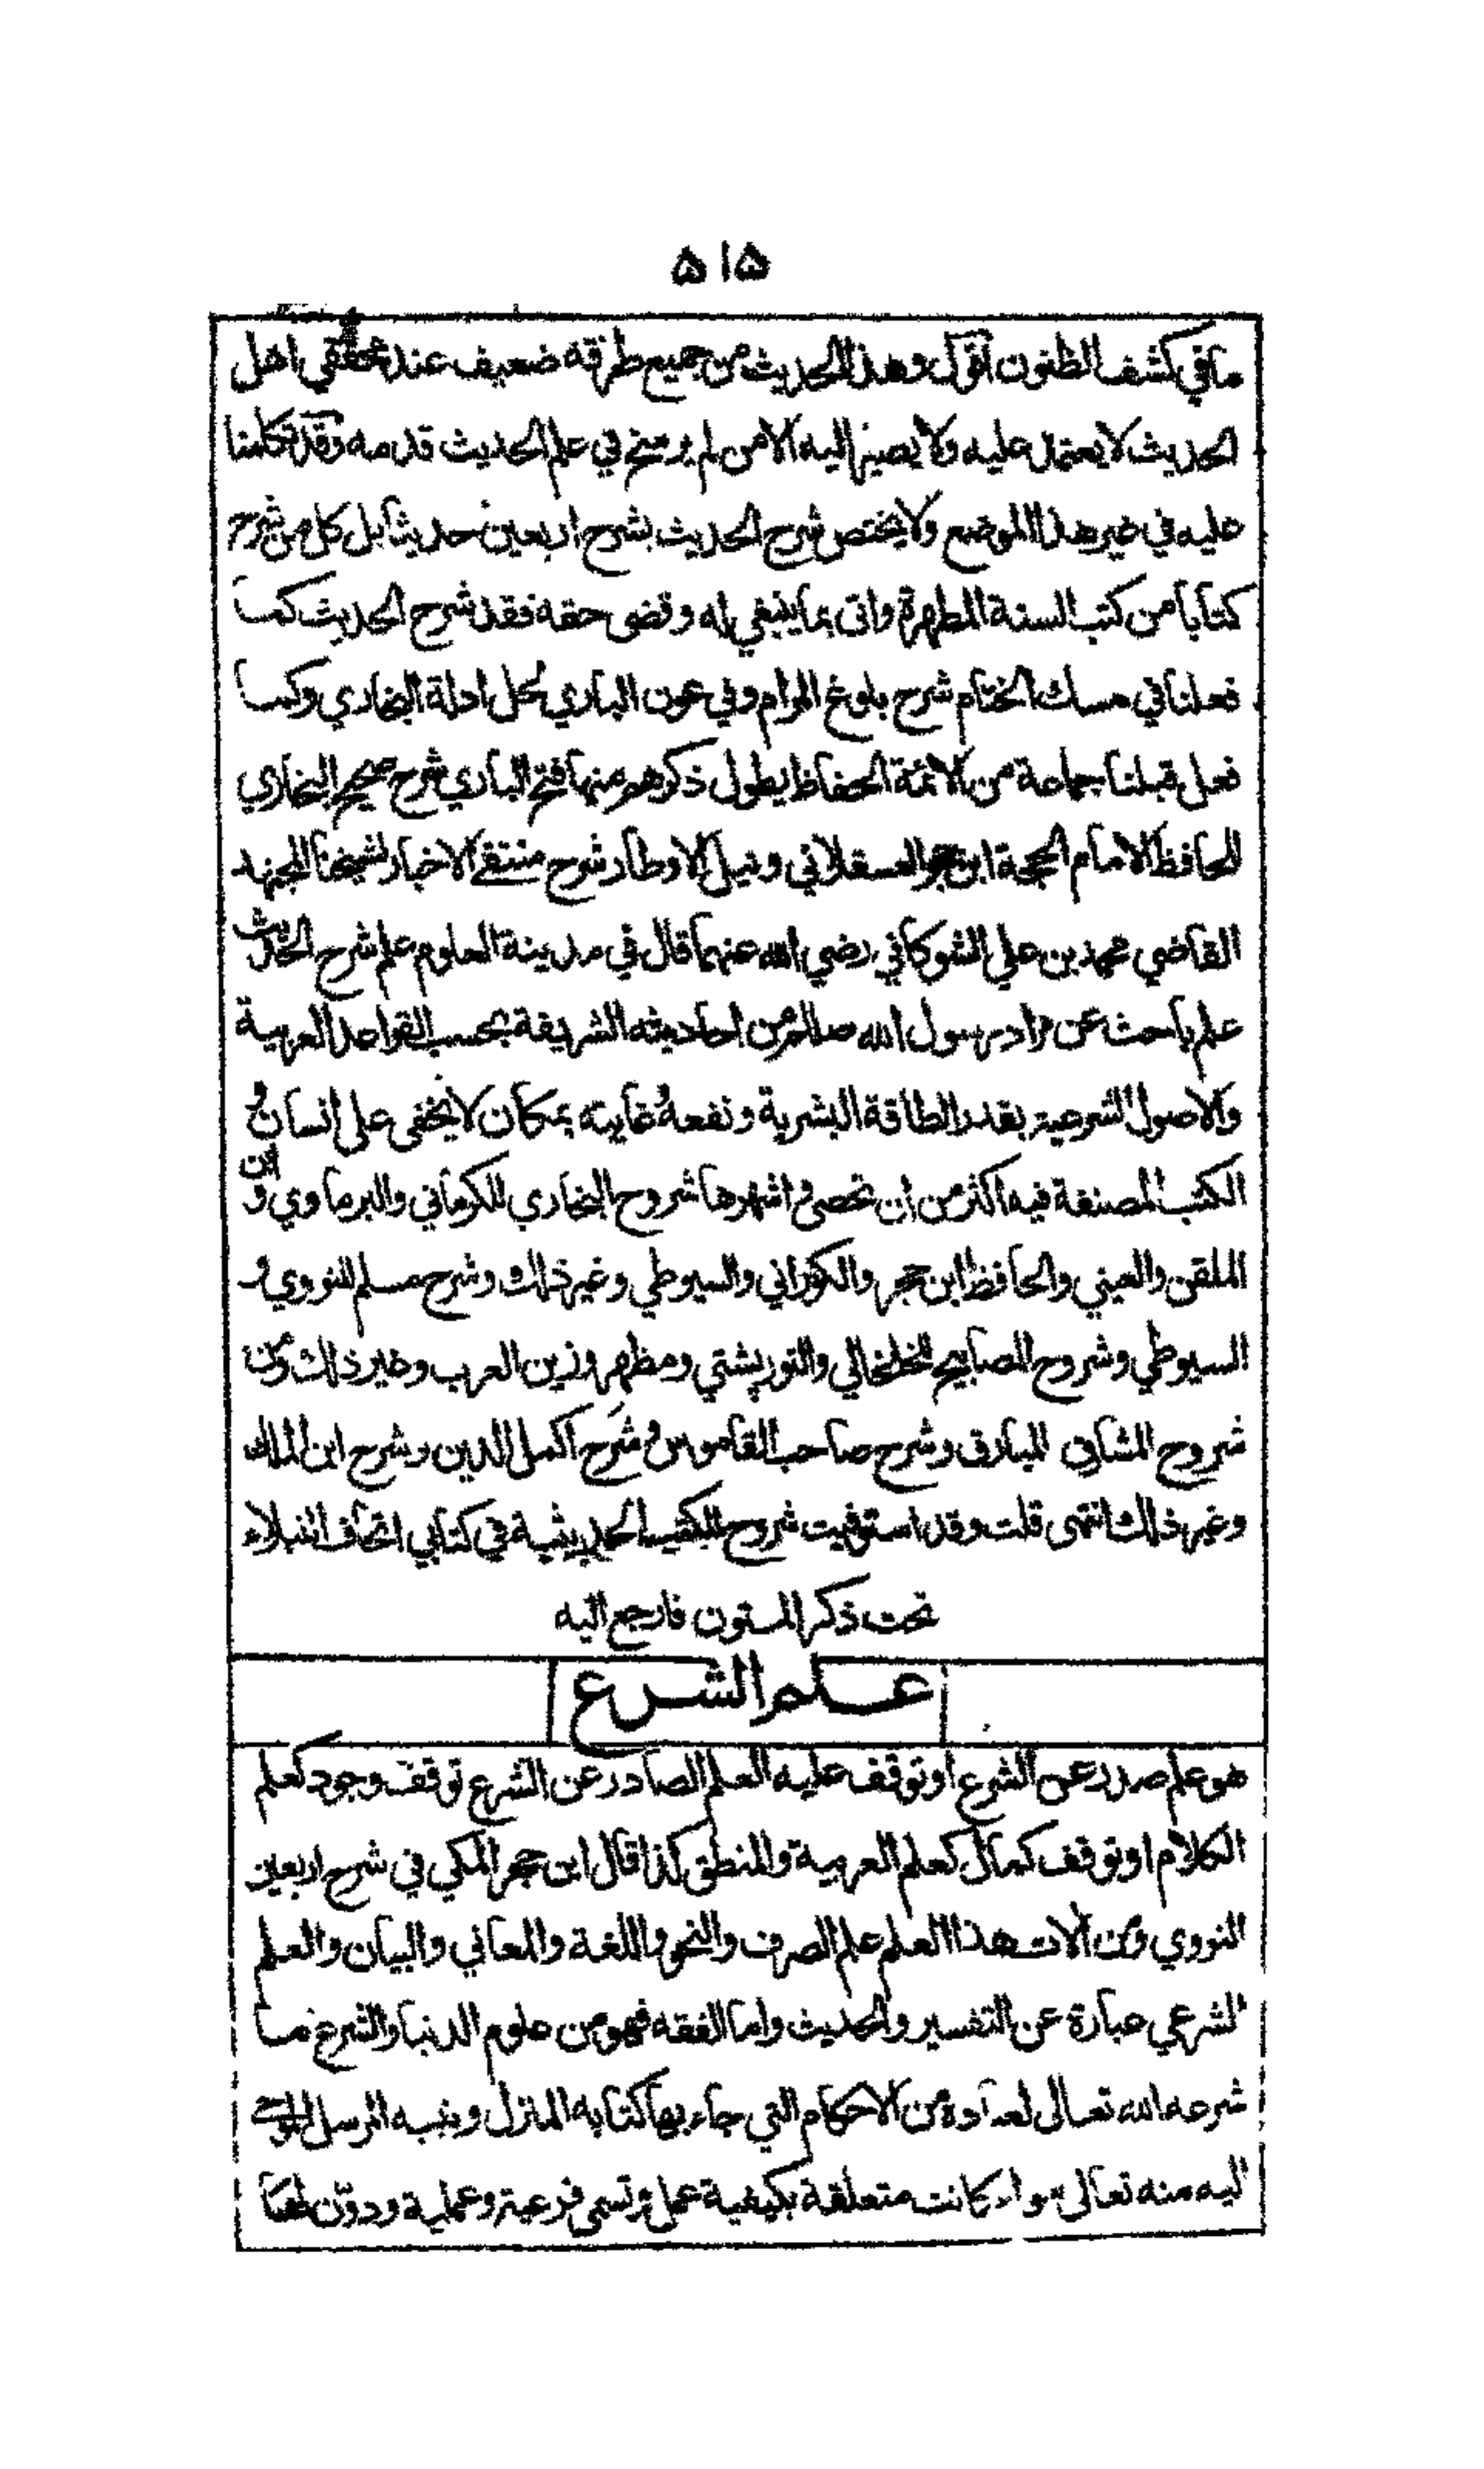 ۵۱۵
ما في كشف الظنون اقول وهذا الحديث من جميع طرقه ضعيف عند محققي اهل
الحديث لا يعتمد عليه ولا يصير اليه الا من لم يرسخ في علم الحديث قدمه وقد تكلمنا
عليه في غير هذا الموضع ولا يختص شرح الحديث بشرح اربعين حديثا بل كل من شرح
كتابا من كتب السنة المطهرة واتى بما ينبغي له وقضى حقه فقد شرح الحديث كما
فعلنا في مسك الختام شرح بلوغ المرام وفي عون الباري لحل ادلة البخاري وكما
فعل قبلنا جماعة من الائمة الحفاظ يطول ذكرهم منها فتح الباري شرح صحيح البخاري
للحافظ الامام الحجة ابن حجر العسقلاني ونيل الاوطار شرح منتقى الاخبار لشيخنا المجتهد
القاضي محمد بن علي الشوكاني رضي الله عنهما قال في مدينة العلوم علم شرح الحديث
علم باحث عن مراد رسول الله صللم من احاديثه الشريفة بحسب القواعد العربية
والاصول الشرعية بقدر الطاقة البشرية ونفعه وغايته بمكان لا يخفى على انسان و
الكتب المصنفة فيه اكثر من ان تحصى واشهرها شروح البخاري للكرماني والبرماوي وابن
الملقن والعيني والحافظ ابن حجر والكوراني والسيوطي وغير ذلك وشرح مسلم للنووي و
السيوطي وشروح المصابيح للخلخالي والتورپشتي ومظهر وزين العرب وغير ذلك ومن
شروح المشارق المبارق وشرح صاحب القاموس وشرح اكمل الدين وشرح ابن الملك
وغير ذلك انتهى قلت وقد استوفيت شروح الكتب الحديثية في كتابي اتحاف النبلاء
تحت ذكر المتون فارجع اليه
علم الشرع
هو علم صدر عن الشرع او توقف عليه العلم الصادر عن الشرع توقف وجود كعلم
الكلام او توقف كمال كعلم العربية والمنطق كذا قال ابن حجر المكي في شرح اربعين
النووي ومن آلات هذا العلم علم الصرف والنحو واللغة والمعاني والبيان والعلم
الشرعي عبارة عن التفسير والحديث واما الفقه فهو من علوم الدنيا والشرع ما
شرعه الله تعالى لعباده من الاحكام التي جاء بها كتابه المنزل ونبيه المرسل الموحى
اليه منه تعالى سواء كانت متعلقة بكيفية عمل وتسمى فرعية وعملية ودون لها